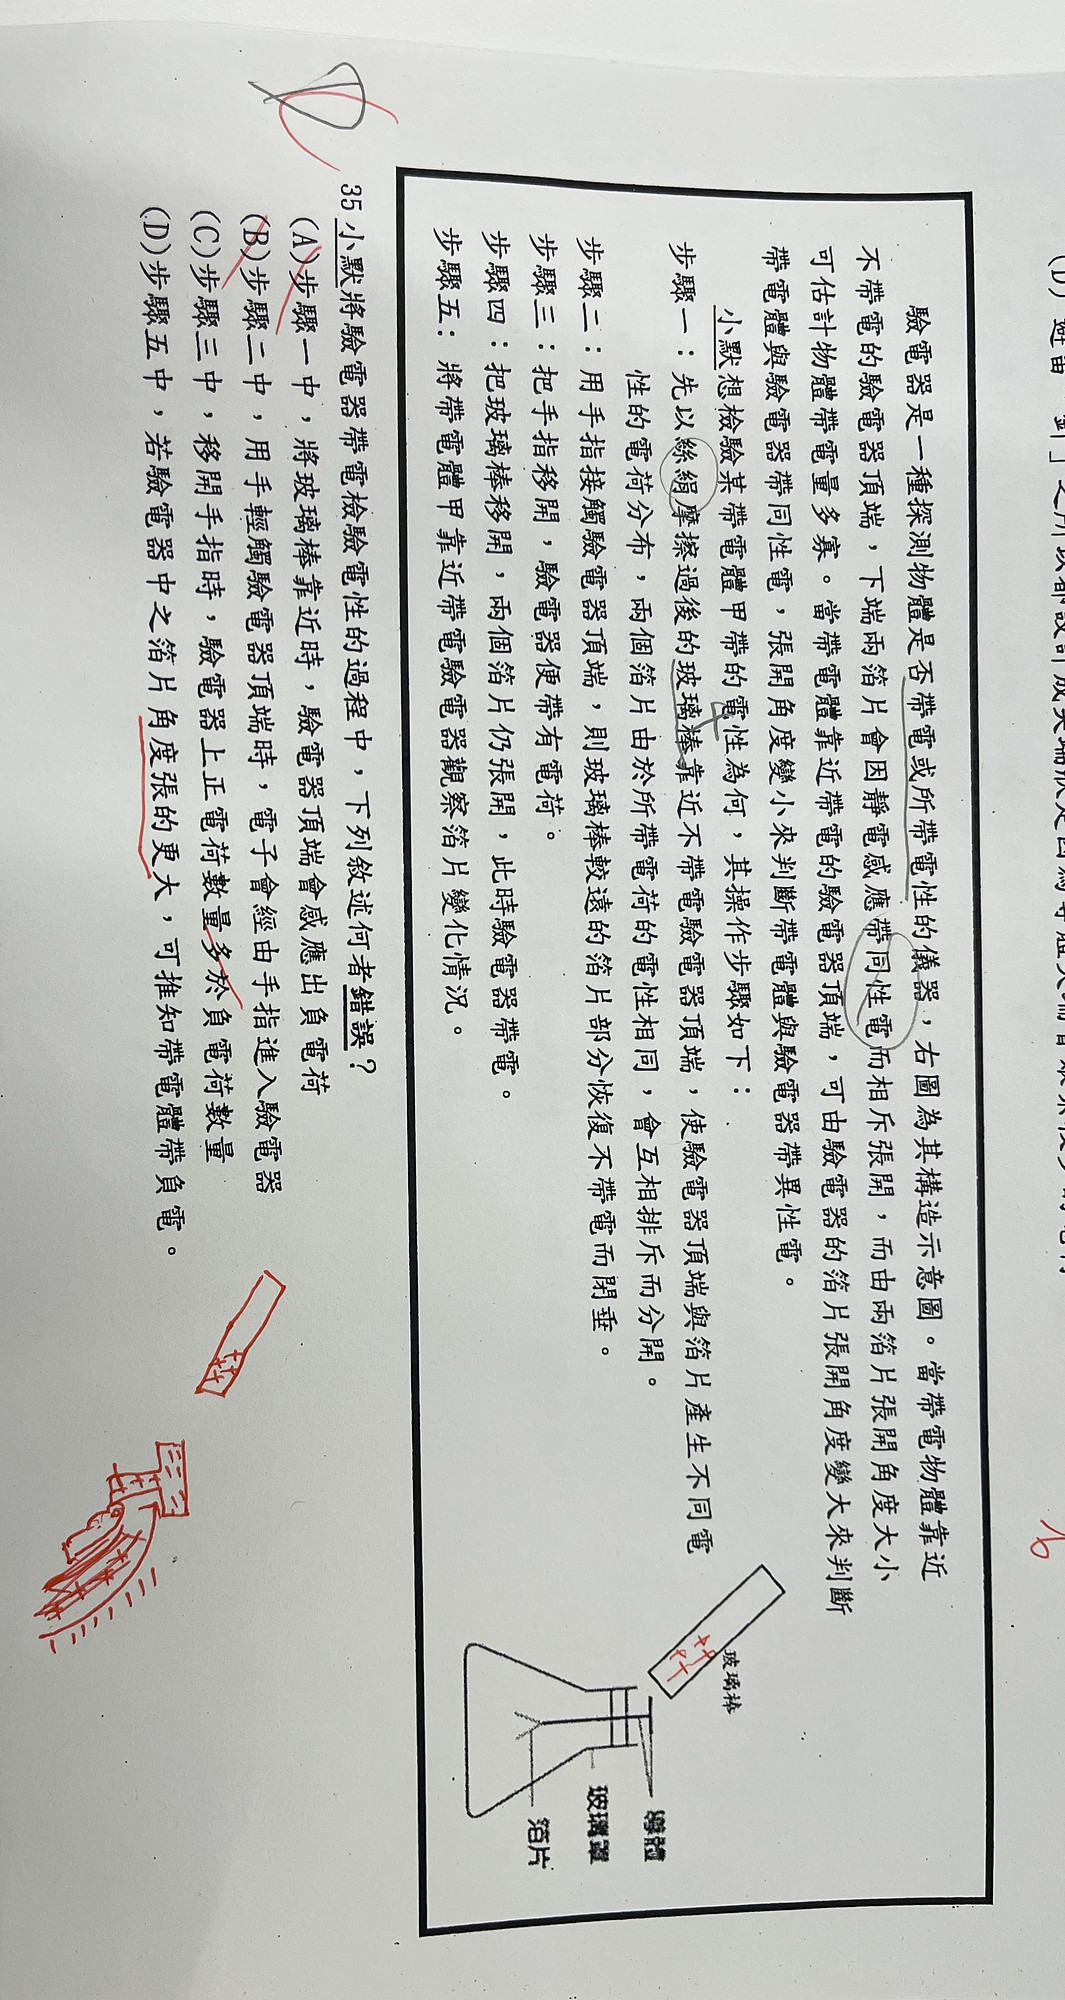 驗電器是一種探測物體是否帶電或所帶電性的儀器,右圖為其構造示意圖。當帶電物體靠近
不帶電的驗電器頂端,下端兩箔片會因靜電感應帶同性電而相斥張開,而由兩箔片張開角度大小
可估計物體帶電量多寡。當帶電體靠近帶電的驗電器頂端,可由驗電器的箔片張開角度變大來判斷
帶電體與驗電器帶同性電,張開角度變小來判斷帶電體與驗電器帶異性電。
小默想檢驗某帶電體甲帶的電性為何,其操作步驟如下:
步驟一:先以絲絹摩擦過後的玻璃棒靠近不帶電驗電器頂端,使驗電器頂端與箔片產生不同電
性的電荷分布,兩個箔片由於所帶電荷的電性相同,會互相排斥而分開。
步驟二:用手指接觸驗電器頂端,則玻璃棒較遠的箔片部分恢復不帶電而閉垂。
步驟三:把手指移開,驗電器便帶有電荷。
步驟四:把玻璃棒移開,兩個箔片仍張開,此時驗電器帶電。
步驟五: 將帶電體甲靠近帶電驗電器觀察箔片變化情況。
玻璃棒
導體
玻璃罩
箔片
35 小默將驗電器帶電檢驗電性的過程中,下列敘述何者錯誤?
(A)步驟一中,將玻璃棒靠近時,驗電器頂端會感應出負電荷
(B)步驟二中,用手輕觸驗電器頂端時,電子會經由手指進入驗電器
(C)步驟三中,移開手指時,驗電器上正電荷數量多於負電荷數量
(D)步驟五中,若驗電器中之箔片角度張的更大,可推知帶電體帶負電。